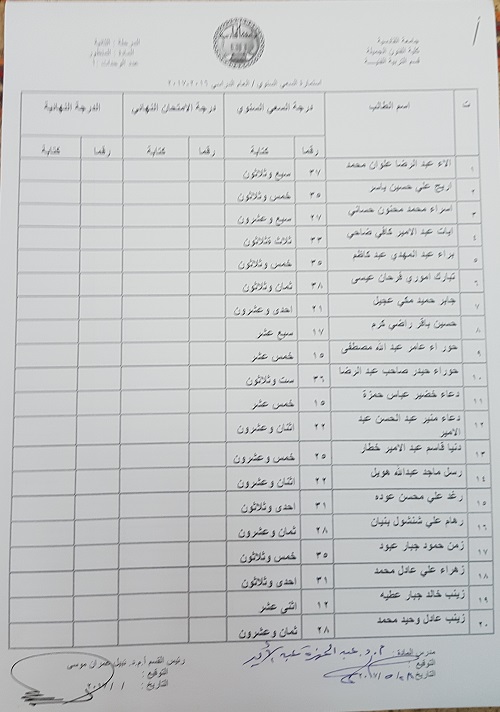 جامعة القادسية
كلية الفنون الجميلة
قسم التربية الفنية
المرحلة : الثانية
المادة : المنظور
عدد الوحدات : ١
استمارة السعي السنوي / العام الدراسي ٢٠١٦-٢٠١٧
ت اسم الطالب درجة السعي السنوي درجة الامتحان النهائي الدرجة النهائية
رقما كتابة رقما كتابة رقما كتابة
١ الاء عبد الرضا علوان محمد ٣٧ سبع وثلاثون
٢ اريج علي حسين ياسر ٣٥ خمس وثلاثون
٣ اسراء محمد حساني ٢٧ سبع وعشرون
٤ ايات عبد الامير كافي ضاحي ٣٣ ثلاث وثلاثون
٥ براء عبد المهدي عبد كاظم ٣٥ خمس وثلاثون
٦ تبارك اموري فرحان عيسى ٣٨ ثمان وثلاثون
٧ جابر حميد مكي عجيل ٢١ احدى وعشرون
٨ حسين باقر راضي كرم ١٧ سبع عشر
٩ حوراء عامر عبد الله مصطفى ١٥ خمس عشر
١٠ حوراء حيدر صاحب عبد الرضا ٣٦ ست وثلاثون
١١ دعاء خضير عباس حمزة ١٥ خمس عشر
١٢ دعاء منير عبد الحسن عبد الامير ٢٢ اثنان وعشرون
١٣ دنيا قاسم عبد الامير خطار ٢٥ خمس وعشرون
١٤ رسل ماجد عبدالله هويل ٢٢ اثنان وعشرون
١٥ رغد علي محسن عوده ٣١ احدى وثلاثون
١٦ رهام علي شنشول بنيان ٢٨ ثمان وعشرون
١٧ زمن حمود جبار عبود ٣٥ خمس وثلاثون
١٨ زهراء علي عادل محمد ٣١ احدى وثلاثون
١٩ زينب خالد جبار عطيه ١٢ اثني عشر
٢٠ زينب عادل وحيد محمد ٢٨ ثمان وعشرون
مدرس المادة : م.د. عبد الحمزة عبد الأمير
التوقيع :
التاريخ :
رئيس القسم أ.م.د. نبيل عمران موسى
التوقيع :
التاريخ : / / ٢٠١٧